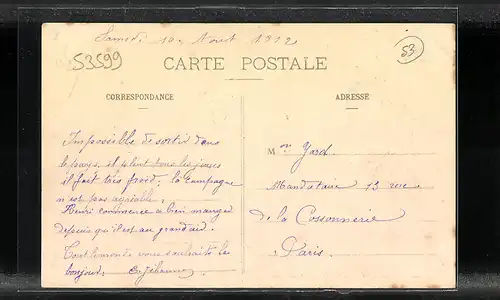 Samedi 10 Aout 1912
53599
53
CARTE POSTALE
CORRESPONDANCE
ADRESSE
Impossible de sortir dans
le pays, il pleut tous les jours
il fait très froid, la campagne
n'est pas agréable.
Henri commence a bien manger
depuis qu'il est au grand air.
Tout le monde vous souhaite le
bonjour.
Mon Yard
Mandataire 13 rue
de la Cossonnerie
Paris.